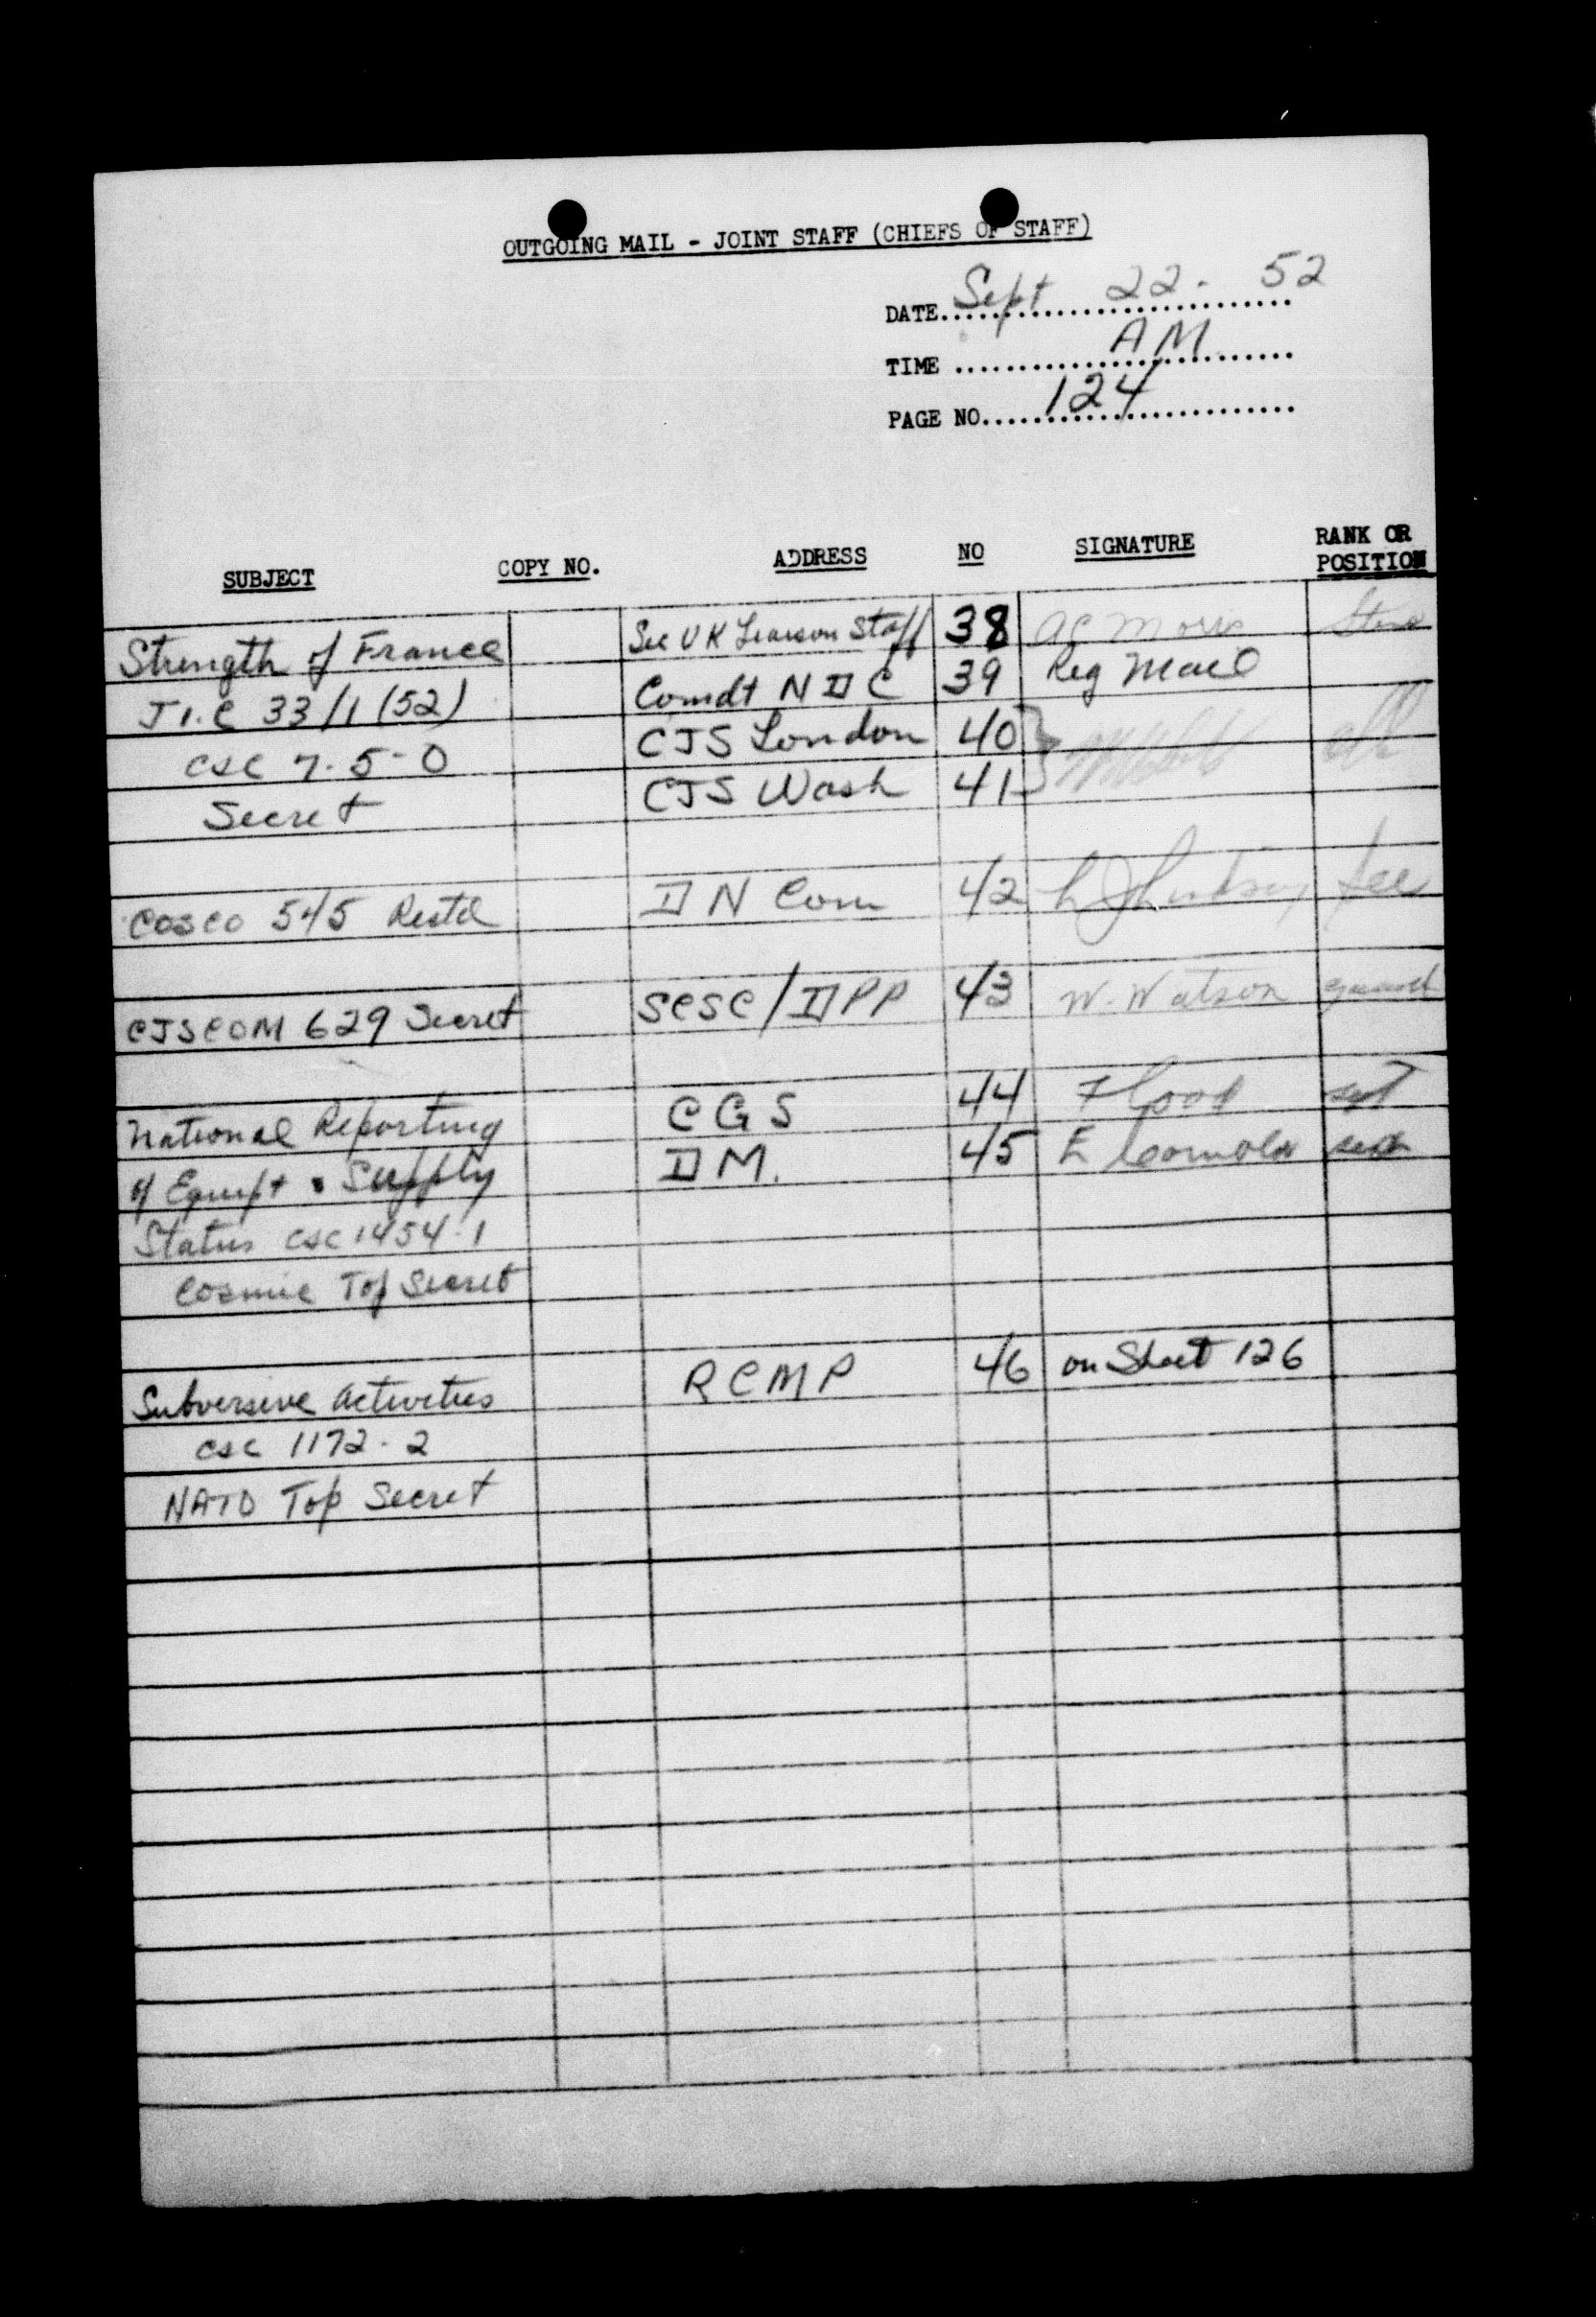 OUTGOING MAIL - JOINT STAFF (CHIEFS OF STAFF)
DATE Sept 22 - 52
TIME AM
PAGE NO. 124
SUBJECT COPY NO. ADDRESS NO SIGNATURE RANK OR POSITION
Strength of France Sec UK Liaison Staff 38 Steno
J I. C 33/1 (52) Comdt N D C 39 Reg Mail
CSC 7-5-0 CJS London 40
Secret CJS Wash 41
COSCO 545 Restd D N Com 42
CJSCOM 629 Secret SCSC/DPP 43 W. Watson
National Reporting C G S 44 Flood sgt
of Equipt & Supply D M. 45 E
Status CSC 1454-1
Cosmic Top Secret
Subversive Activities R C M P 46 on Sheet 126
CSC 1172-2
NATO Top Secret